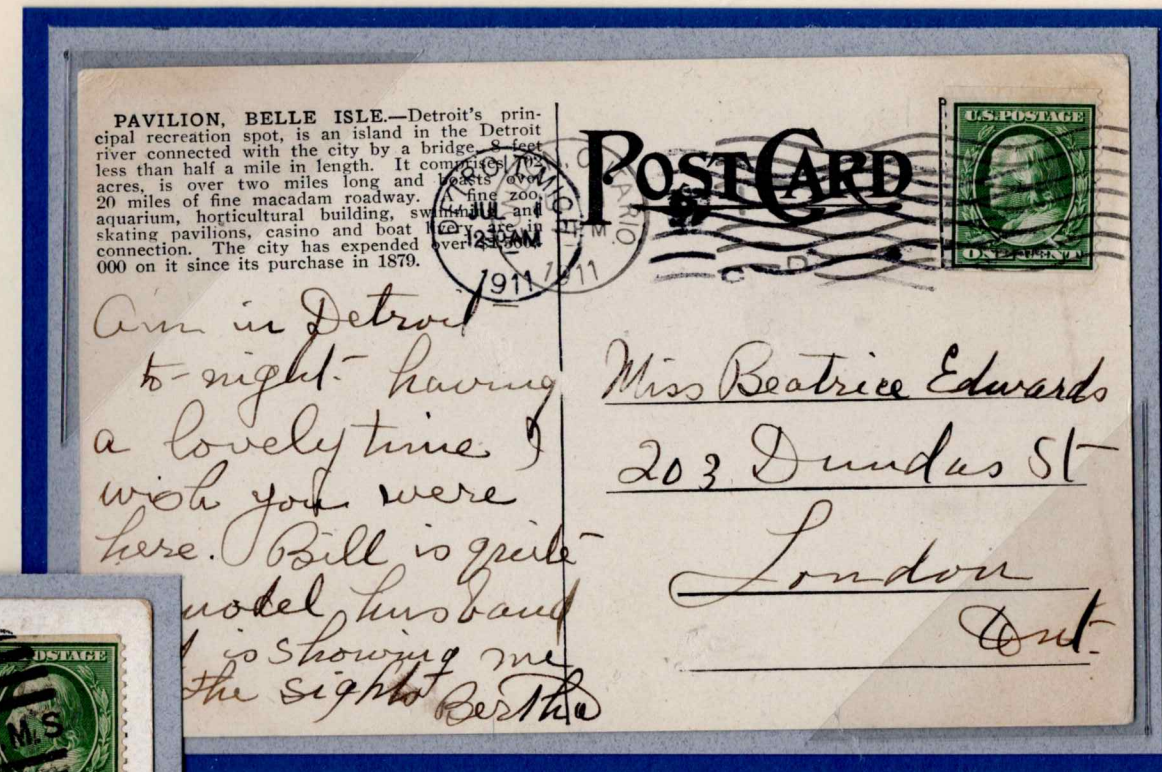 PAVILION, BELLE ISLE.—Detroit's prin-
cipal recreation spot, is an island in the Detroit
river connected with the city by a bridge, 8 feet
less than half a mile in length. It comprises 702
acres, is over two miles long and boasts over
20 miles of fine macadam roadway. A fine zoo,
aquarium, horticultural building, swimming and
skating pavilions, casino and boat livery are in
connection. The city has expended over
000 on it since its purchase in 1879.
POST CARD
U.S. POSTAGE
ONE CENT
DETROIT, MICH
JUL
12 PM
1911
ONTARIO
1911
Am in Detroit
to-night. having
a lovely time &
wish you were
here. Bill is quite
model husband
is showing me
the sights
Bertha
Miss Beatrice Edwards
203 Dundas St
London
Ont.
POSTAGE
M.S